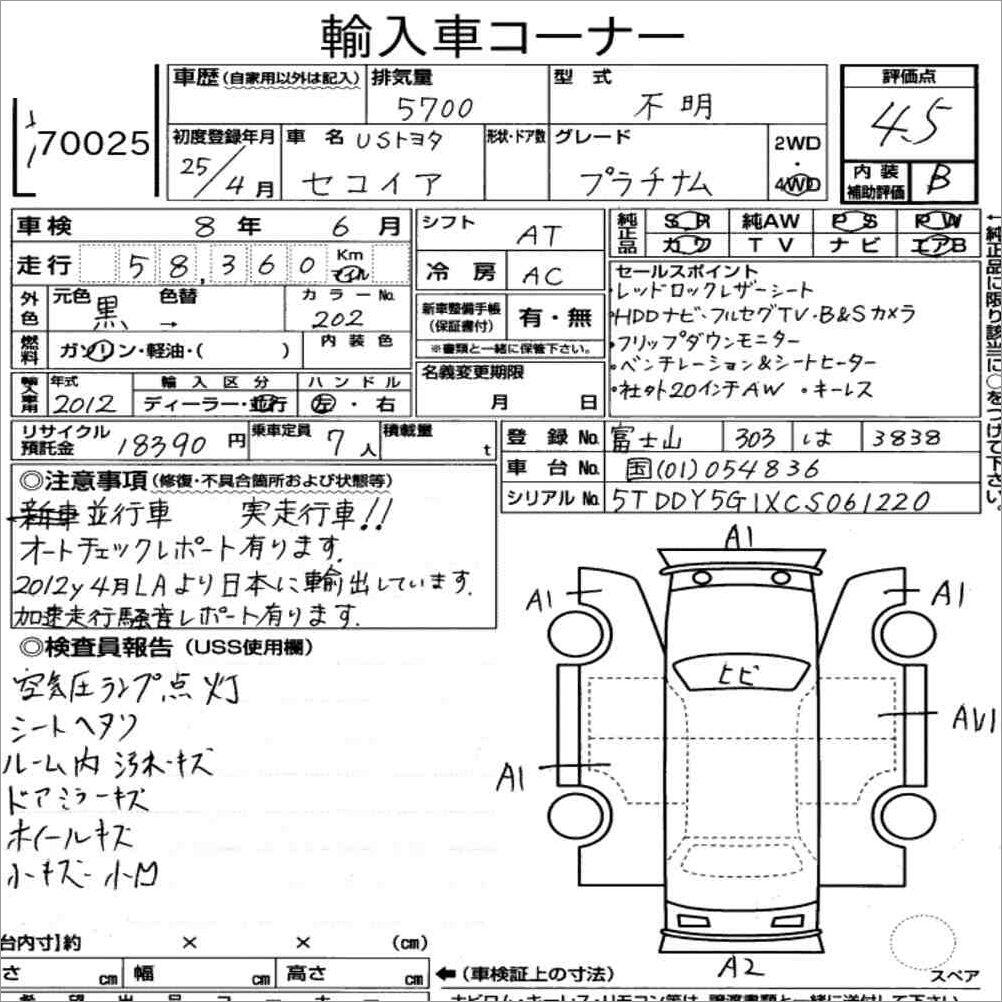 輸入車コーナー
70025
車歴 (自家用以外は記入) 排気量 型式 評価点
5700 不明 4.5
初度登録年月 車名 USトヨタ 形状・ドア数 グレード 2WD
25/4月 セコイア プラチナム ・ 4WD
内装補助評価 B
車検 8年 6月
シフト AT
純正品 SR 純AW PS PW
カワ TV ナビ エアB
走行 58,360 Km マイル
冷房 AC
外色 元色 黒 色替 → カラーNo. 202
新車整備手帳 (保証書付) 有・無
※書類と一緒に保管下さい。
燃料 ガソリン・軽油・( ) 内装色
名義変更期限
月 日
輸入車用 年式 2012 輸入区分 ディーラー・並行 ハンドル 左・右
セールスポイント
・レッドロックレザーシート
・HDDナビ・フルセグTV・B&Sカメラ
・フリップダウンモニター
・ベンチレーション&シートヒーター
・社外20インチAW ・キーレス
←純正品に限り該当に○をつけて下さい。
リサイクル預託金 18390円 乗車定員 7人 積載量 t
登録No. 富士山 303 は 3838
車台No. 国(01)054836
シリアルNo. 5TDDY5G1XCS061220
◎注意事項 (修復・不具合箇所および状態等)
新車並行車 実走行車!!
オートチェックレポート有ります.
2012y 4月LAより日本に輸出しています.
加速走行騒音レポート有ります.
◎検査員報告 (USS使用欄)
空気圧ランプ点灯
シートヘタリ
ルーム内 汚れ・キズ
ドアミラーキズ
ホイールキズ
小キズ・小凹
A1
A1 A1
ヒビ
AV1
A1
A2
スペア
台内寸】約 × × (cm)
さ cm 幅 cm 高さ cm
←(車検証上の寸法)
希望出品コーナー
ナビロム・キーレス・リモコン等は、譲渡書類と一緒に送付して下さい